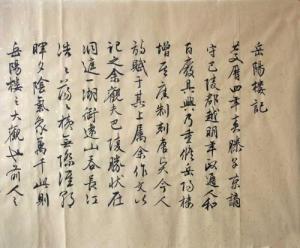 岳陽樓記
慶曆四年春滕子京謫
守巴陵郡越明年政通人和
百廢具興乃重修岳陽樓
增其舊制刻唐賢今人
詩賦于其上屬余作文以
記之余觀夫巴陵勝狀在
洞庭一湖銜遠山吞長江
浩〻湯〻橫無際涯朝
暉夕陰氣象萬千此則
岳陽樓之大觀也前人之